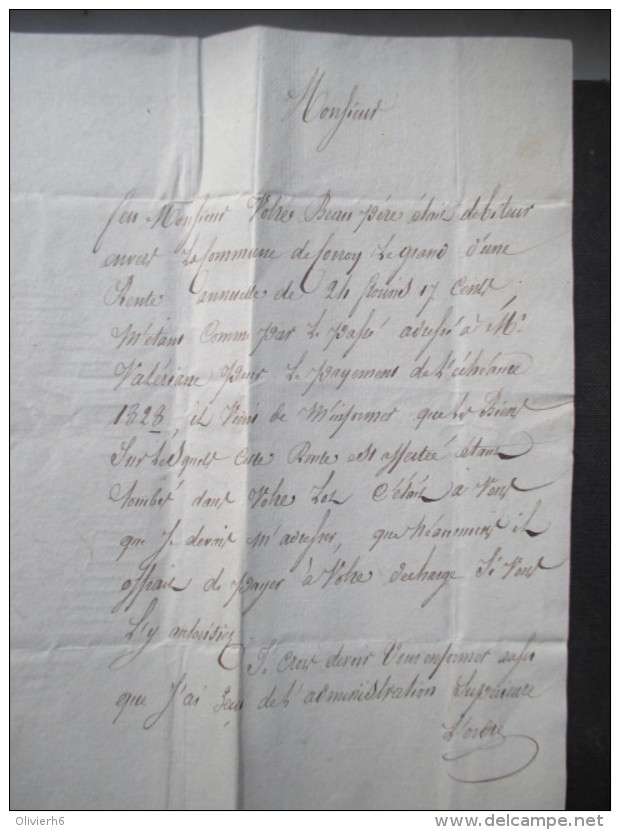 Monsieur
feu Monsieur Votre Beau père était débiteur
envers La Commune de Corroy Le grand d'une
Rente annuelle de 24 florins 17 Cents
M'étant Comme par Le passé adressé à Mr
Valériane pour Le payement de L'échéance
1828, il Vient de M'informer que Les Biens
Sur Lesquels Cette Rente est affectée étant
tombés dans Votre Lot C'était à Vous
que Je devais m'adresser, que Néanmoins il
offrait de payer à Votre décharge Si Vous
L'y autorisiez
Je Crois devoir Vous informer aussi
que J'ai reçu de L'administration Supérieure
L'ordre
Olivierh6
www.delcampe.net